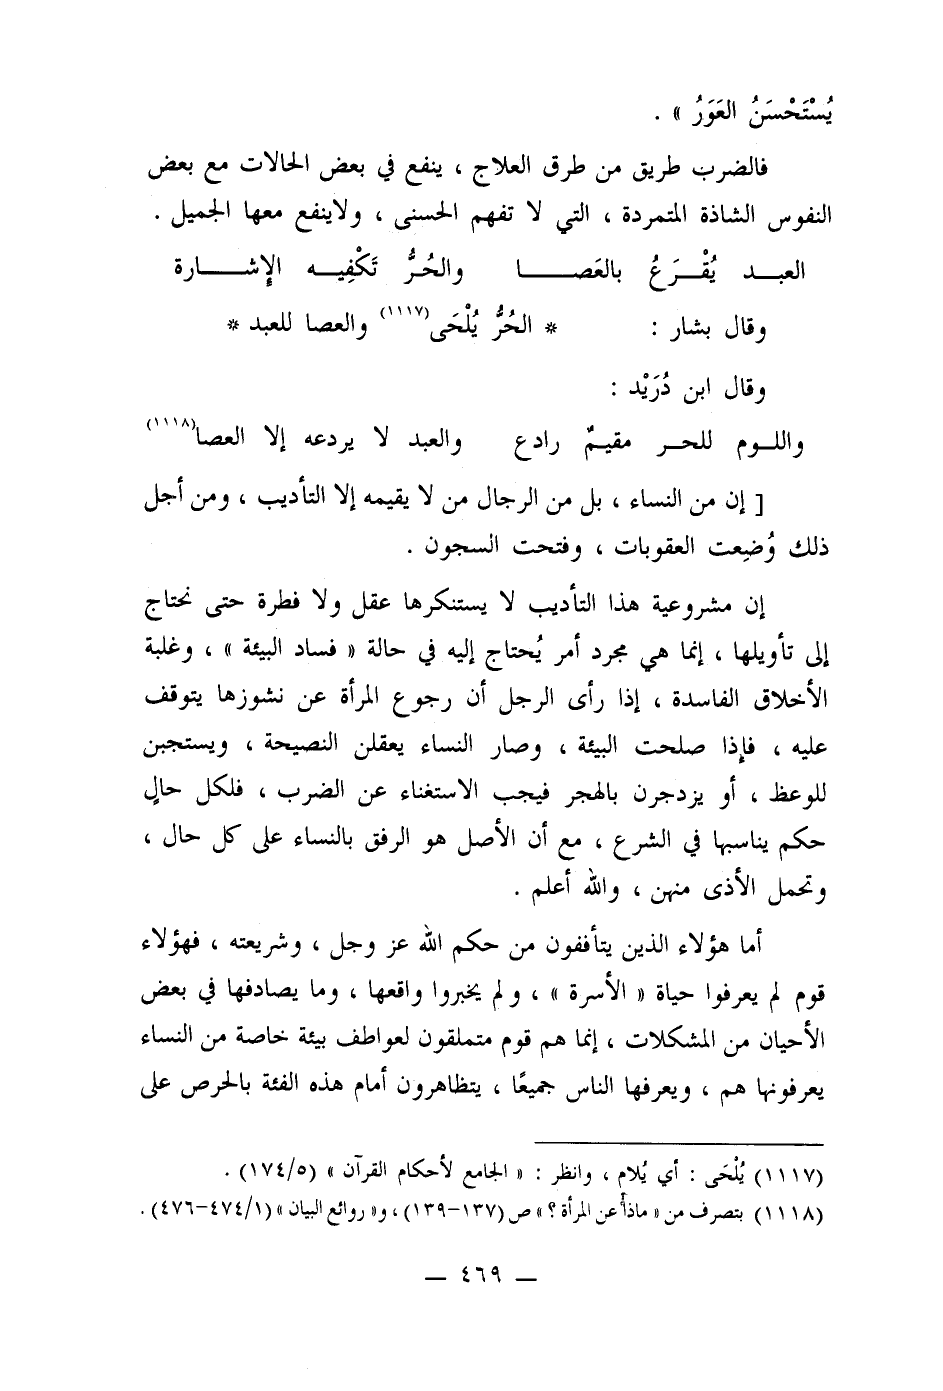 يُسْتَحْسَنُ العَوَرُ » .
فالضرب طريق من طرق العلاج ، ينفع في بعض الحالات مع بعض
النفوس الشاذة المتمردة ، التي لا تفهم الحسنى ، ولاينفع معها الجميل .
العبـــد يُقْـــرَعُ بالعَصـــــا والحُرُّ تَكْفِيـــه الإِشـــــارة
وقال بشار : * الحُرُّ يُلْحَى(١١١٧) والعصا للعبد *
وقال ابن دُرَيْد :
واللـــوم للحـــر مقيـمٌ رادع والعبد لا يردعه إلا العصا(١١١٨)
[ إن من النساء ، بل من الرجال من لا يقيمه إلا التأديب ، ومن أجل
ذلك وُضِعت العقوبات ، وفتحت السجون .
إن مشروعية هذا التأديب لا يستنكرها عقل ولا فطرة حتى نحتاج
إلى تأويلها ، إنما هي مجرد أمر يُحتاج إليه في حالة « فساد البيئة » ، وغلبة
الأخلاق الفاسدة ، إذا رأى الرجل أن رجوع المرأة عن نشوزها يتوقف
عليه ، فإذا صلحت البيئة ، وصار النساء يعقلن النصيحة ، ويستجبن
للوعظ ، أو يزدجرن بالهجر فيجب الاستغناء عن الضرب ، فلكل حالٍ
حكم يناسبها في الشرع ، مع أن الأصل هو الرفق بالنساء على كل حال ،
وتحمل الأذى منهن ، والله أعلم .
أما هؤلاء الذين يتأففون من حكم الله عز وجل ، وشريعته ، فهؤلاء
قوم لم يعرفوا حياة « الأسرة » ، ولم يخبروا واقعها ، وما يصادفها في بعض
الأحيان من المشكلات ، إنما هم قوم متملقون لعواطف بيئة خاصة من النساء
يعرفونها هم ، ويعرفها الناس جميعًا ، يتظاهرون أمام هذه الفئة بالحرص على
(١١١٧) يُلْحَى : أي يُلام ، وانظر : « الجامع لأحكام القرآن » (١٧٤/٥) .
(١١١٨) بتصرف من « ماذا عن المرأة ؟ » ص (١٣٧-١٣٩) ، و« روائع البيان » (٤٧٤/١-٤٧٦) .
— ٤٦٩ —